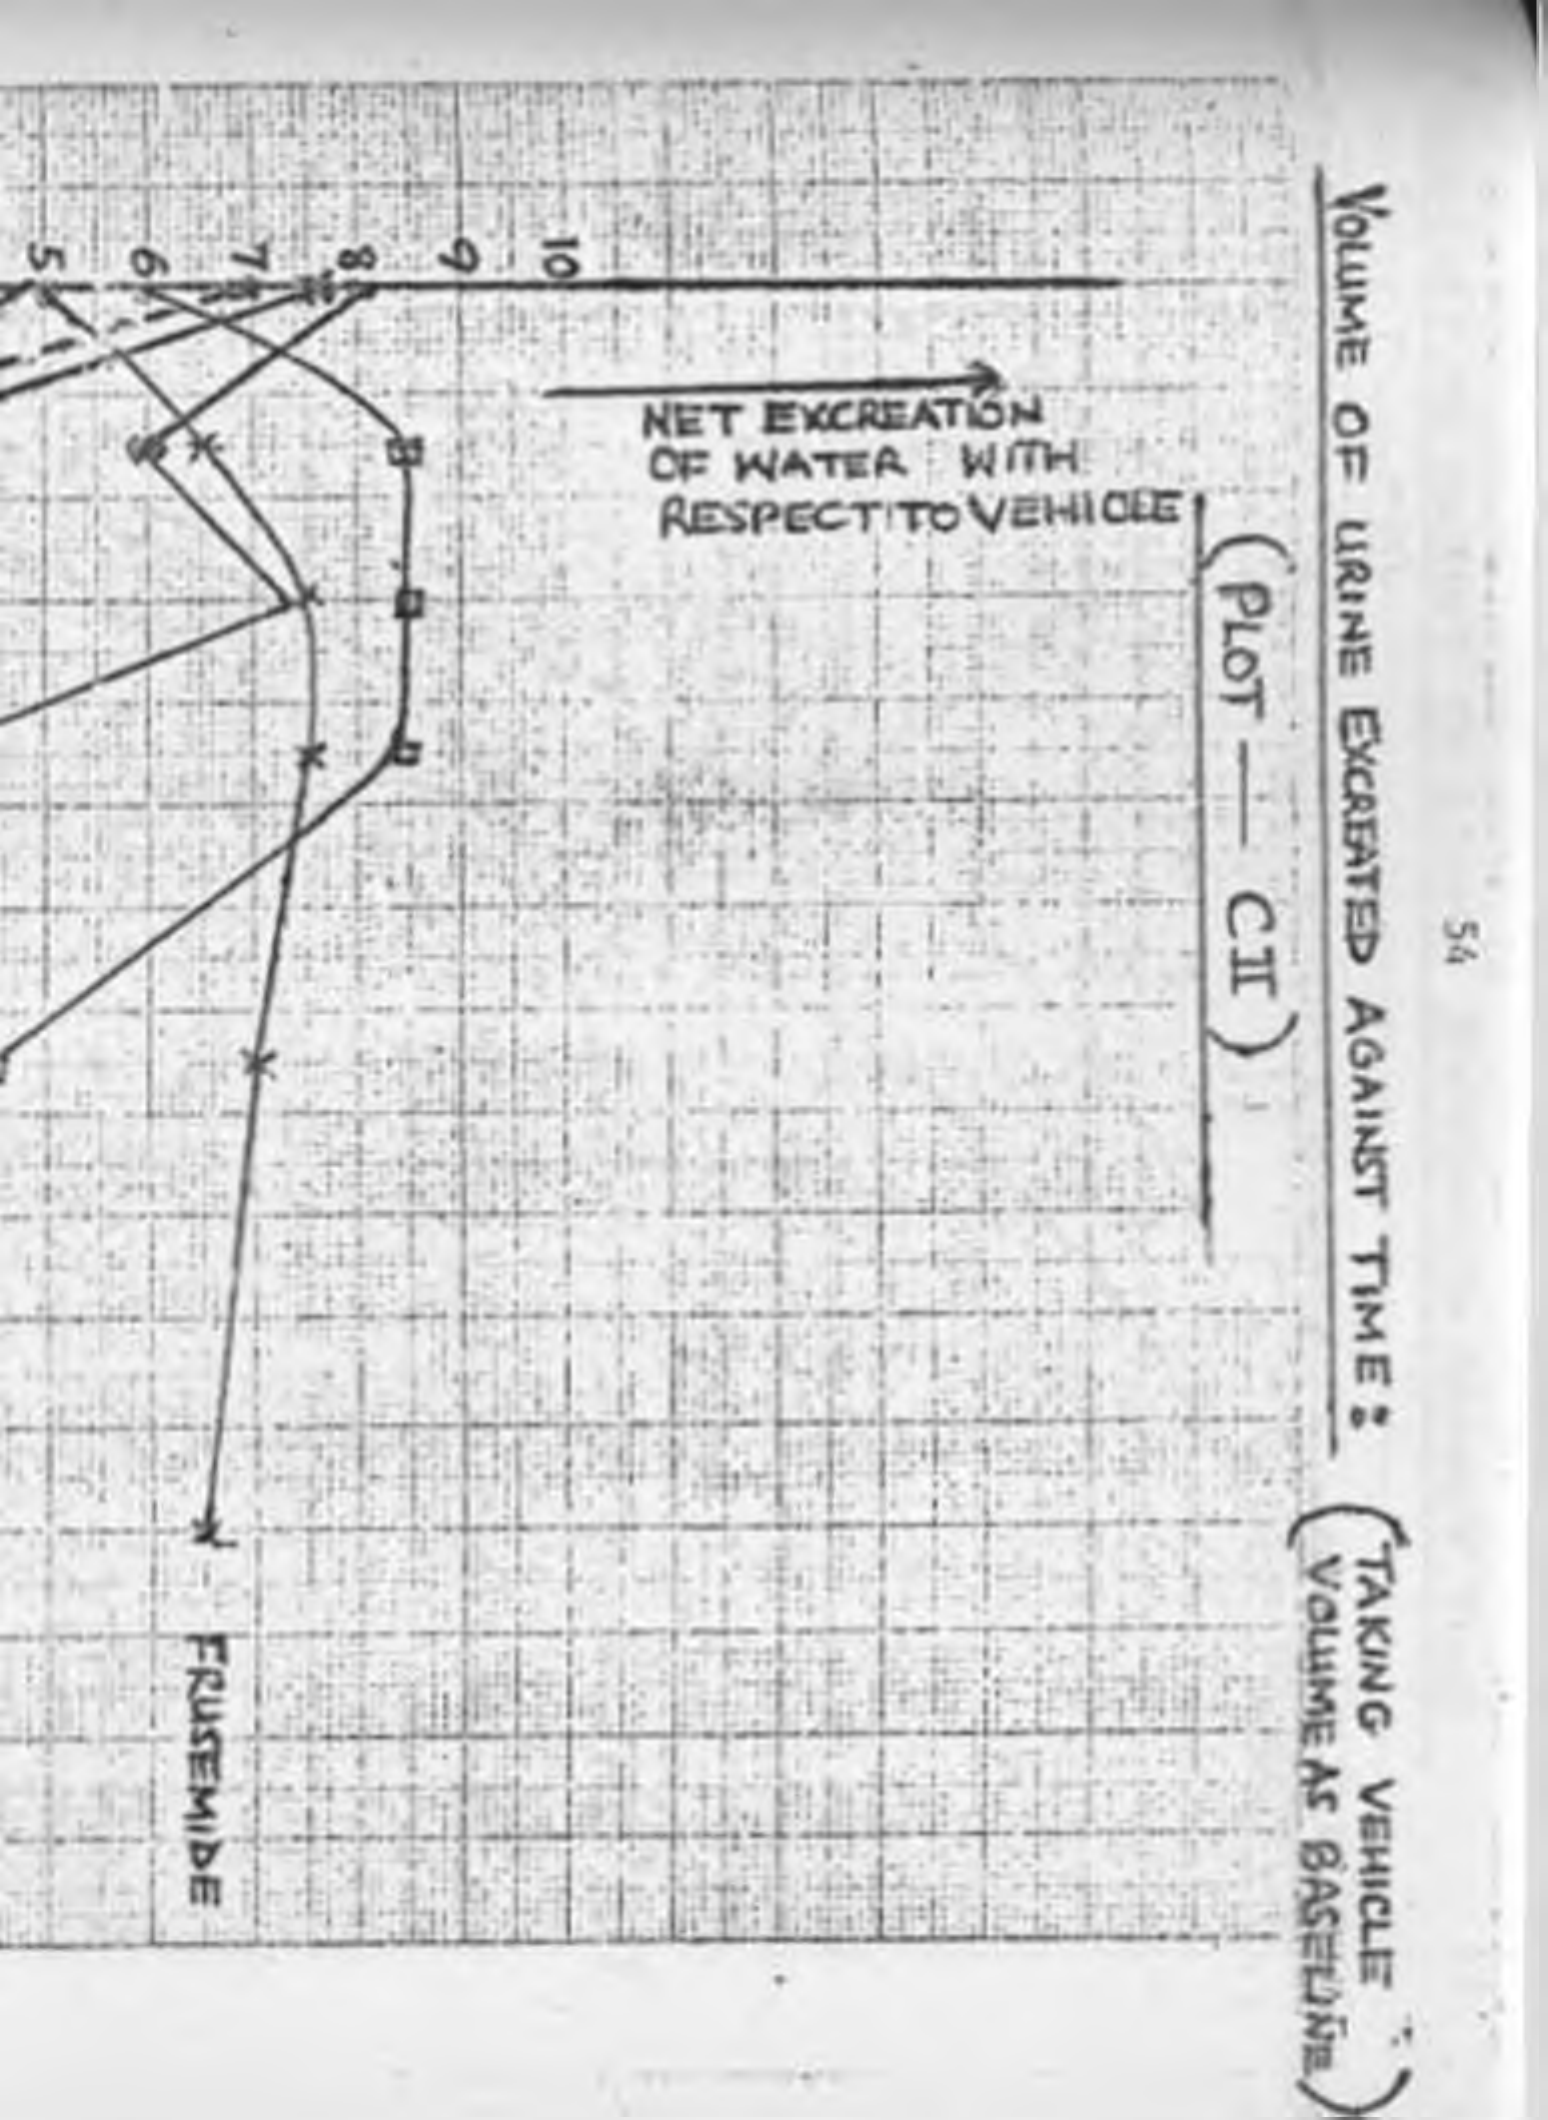 54
VOLUME OF URINE EXCREATED AGAINST TIME : (TAKING VEHICLE
VOLUME AS BASELINE)
(PLOT — CII)
NET EXCREATION
OF WATER WITH
RESPECT TO VEHICLE
10
9
8
7
6
5
FRUSEMIDE